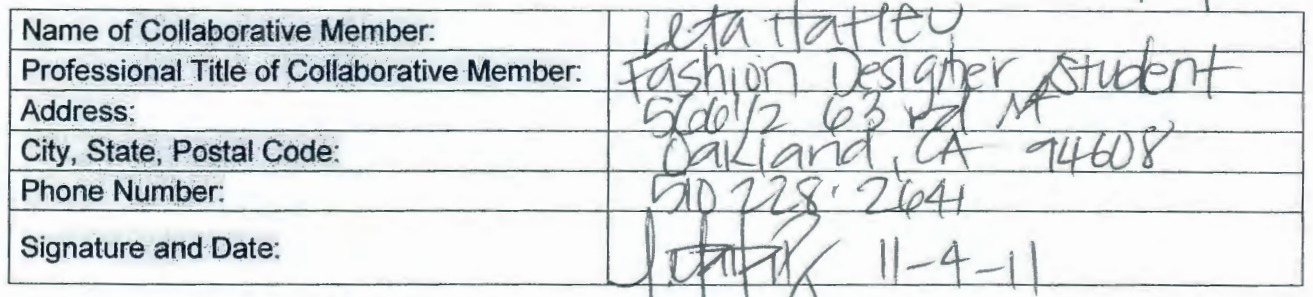 Name of Collaborative Member: Leta
Professional Title of Collaborative Member: Fashion Designer Student
Address: 566 1/2 63 rd
City, State, Postal Code: Oakland, CA 94608
Phone Number: 510 228 · 2641
Signature and Date: 11-4-11